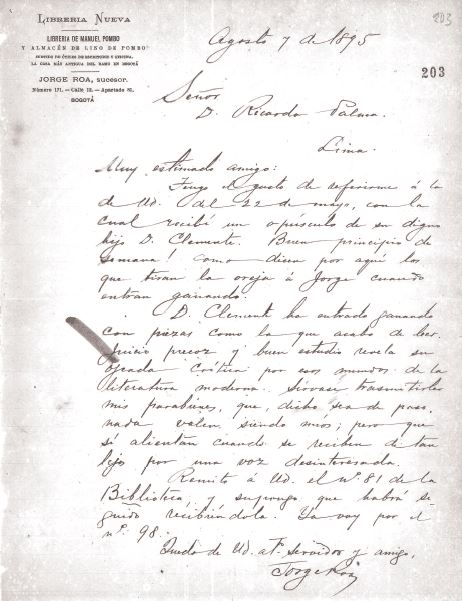 LIBRERIA NUEVA
LIBRERIA DE MANUEL POMBO
Y ALMACÉN DE LINO DE POMBO
SURTIDO DE ÚTILES DE ESCRITORIO Y OFICINA,
LA CASA MÁS ANTIGUA DEL RAMO EN BOGOTÁ
JORGE ROA, sucesor.
Número 171.—Calle 12.—Apartado 81.
BOGOTÁ
203
203
Agosto 7 de 1895
Señor
D. Ricardo Palma.
Lima.
Muy estimado amigo:
Tengo el gusto de referirme á la
de Ud. del 22 de mayo, con la
cual recibí un opúsculo de su digno
hijo D. Clemente. Buen principio de
semana! como dicen por aquí los
que tiran la oreja á Jorge cuando
entran ganando.
D. Clemente ha entrado ganando
con piezas como la que acabo de leer.
Juicio precoz y buen estudio revela su
ojeada crítica por esos mundos de la
literatura moderna. Sírvase trasmitirle
mis parabienes, que, dicho sea de paso,
nada valen siendo míos; pero que
sí alientan cuando se reciben de tan
lejos por una voz desinteresada.
Remito á Ud. el nº. 81 de la
Biblioteca, y supongo que habrá se
guido recibiéndola. Ya voy por el
nº. 98.
Quedo de Ud. atº. servidor y amigo,
Jorge Roa